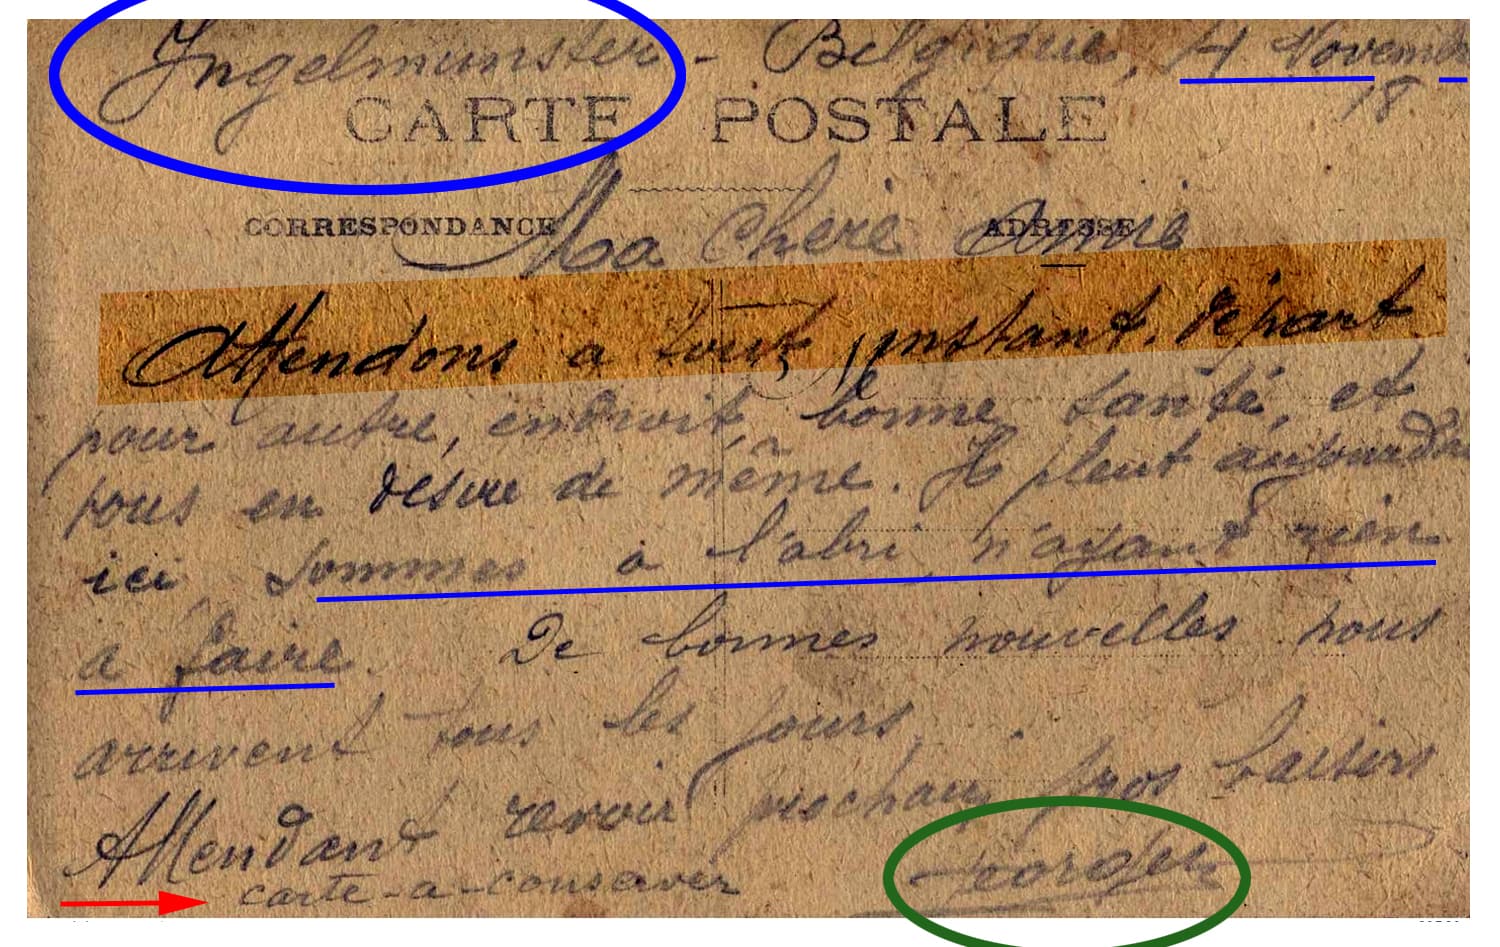 Ingelmunster - Belgique, 4 Novembre
18
CARTE POSTALE
CORRESPONDANCE ADRESSE
Ma Chere Amie
Attendons a tout instant. départ
pour autre, endroit bonne santé, et
vous en désire de même. Il pleut aujourd'hui
ici Sommes a l'abri n'ayant rien
a faire. De bonnes nouvelles nous
arrivent tous les jours,
Attendant revoir prochain gros baisers
carte-a-conserver
Georges